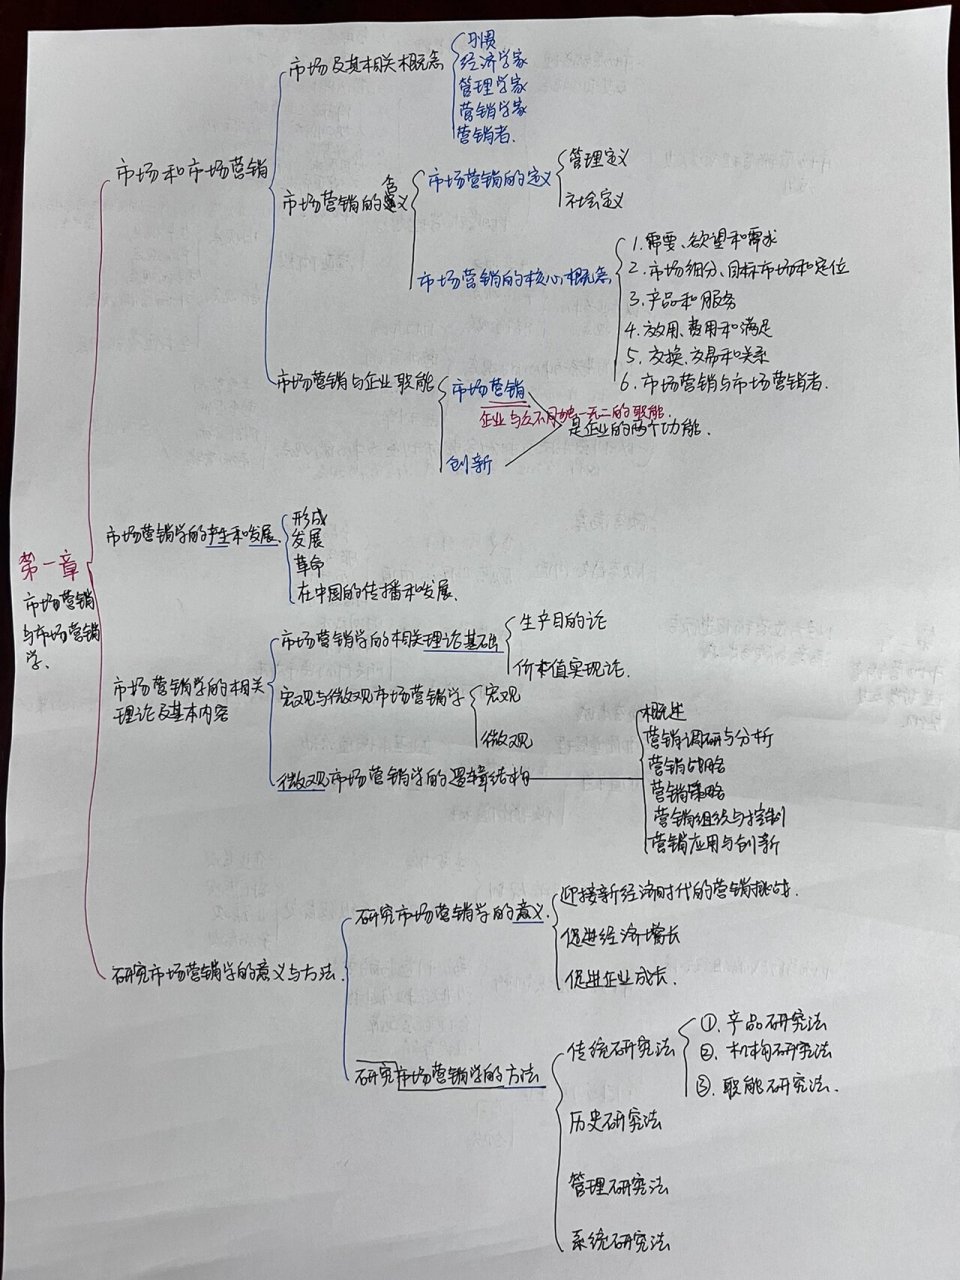 市场及其相关概念
习惯
经济学家
管理学家
营销学家
营销者.
市场和市场营销
市场营销的含义
市场营销的定义
管理定义
社会定义
市场营销的核心概念
1.需要、欲望和需求
2.市场细分、目标市场和定位
3.产品和服务
4.效用、费用和满足
5.交换、交易和关系
6.市场营销与市场营销者.
市场营销与企业职能
市场营销
企业与众不同独一无二的职能.
是企业的两个功能.
创新
第一章
市场营销
与市场营销
学.
市场营销学的产生和发展
形成
发展
革命
在中国的传播和发展.
市场营销学的相关
理论及基本内容
市场营销学的相关理论基础
生产目的论
价值实现论.
宏观与微观市场营销学
宏观
微观
微观市场营销学的逻辑结构
概述
营销调研与分析
营销战略
营销策略
营销组织与控制
营销应用与创新
研究市场营销学的意义与方法.
研究市场营销学的意义.
迎接新经济时代的营销挑战.
促进经济增长
促进企业成长.
研究市场营销学的方法
传统研究法
①.产品研究法
②.机构研究法
③.职能研究法.
历史研究法
管理研究法
系统研究法